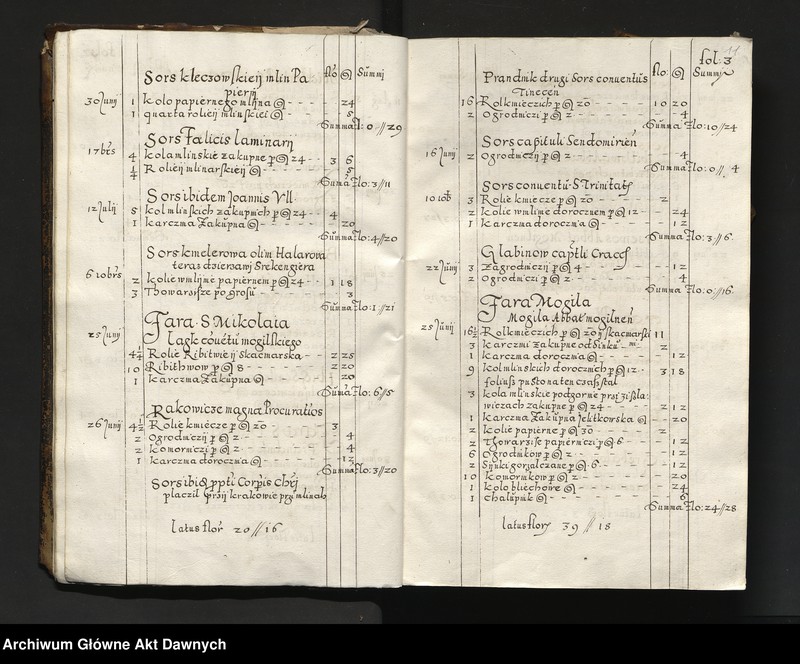 flo ɕ Sum̄ij
Sors kleczowskieij mlin Pa
pierij
30 Junij 1 kolo papiernego mlijna ɕ - - - 24
1 quarta rolieij mlinskieij ɕ - - - 5
Sum̄a fl: 0 // 29
Sors Falicis laminarij
17 bris 4 kola mlinskie zakupne p ɕ 24 - - 3 6
1/4 Rolieij mlinarskieij ɕ - - - 5
Sum̄a Flo: 3 // 11
Sors ibidem Joannis Vll
12 Julij 5 kol mlinskich zakupnich p ɕ 24 - - 4
1 karczma Zakupna ɕ - - - 20
Sum̄a Flo: 4 // 20
Sors kmelerowa olim Halarowa
teras dzierzawij Srekengiera
6 10bris 2 kolie w mlijnie papiernem p ɕ 24 - - 1 18
3 Thowarisze po grosu - - - 3
Sum̄a Flo: 1 // 21
Fara S Mikolaia
lagk couētu mogilskiego
25 Junij 4 1/2 Rolie Ribitwie ij skaczmarska - - 2 25
10 Ribithwow p ɕ 8 - - - 2 20
1 karczma Zakupna ɕ - - - 20
Sum̄a Flo: 6 // 5
Rakowicze magnā Procuratios
26 Junij 4 1/2 Rolie kmiecze p ɕ 20 - - 3
2 ogrodniczij p ɕ 2 - - - 4
2 komorniczi p ɕ 2 - - - 4
1 karczma doroczna ɕ - - - 12
Summa Flo: 3 // 20
Sors ibid ppti Corpis Chrj
placzil przij krakowie przij mlinach
latus flor 20 // 16
11
fol: 3
flo: ɕ Summij
Prandnik drugi Sors conventus
Tinecen
16 Rol kmieczich p ɕ 20 - - 10 20
2 ogrodniczi p ɕ 2 - - - 4
Sum̄a Flo: 10 // 24
Sors capituli Sendomirien
16 Junij 2 ogrodniczij p ɕ 2 - - - 4
Summa Flo: 0 // 4
Sors conventu S Trinitatis
10 10b 3 Rolie kmiecze p ɕ 20 - - 2
2 kolie w mlijnie dorocznem p ɕ 12 - - 24
1 karczma doroczna ɕ - - - 12
Summa Flo: 3 // 6
Glabinow captli Craccs
22 Junij 3 Zagrodniczij ɕ 4 - - - 12
2 ogrodniczi p ɕ 2 - - - 4
Summa Flo: 0 // 16
Fara Mogila
Mogila Abbat mogilnen
25 Junij 16 1/2 Rol kmieczich p ɕ 20 ij skaczmarski 11
3 karczmi zakupne - - 2
1 karczma doroczna ɕ - - - 12
9 kol mlinskich dorocznich p ɕ 12 - 3 18
folius pusto na ten czas stal
3 kola mlinskie podgorne
wiczach zakupne p ɕ 24 - - 2 12
1 karczma Zakupna ɕ - - 20
2 kolie papierne p ɕ 30 - - 2
2 Thowarzise papierniczi p ɕ 6 - - 12
6 ogrodnikow p ɕ 2 - - - 12
2 Sijnki gorzalczane p ɕ 6 - - - 12
10 komornikow p ɕ 2 - - - 20
1 kolo bliechowe ɕ - - - 24
1 chalupnik ɕ - - - 6
Summa Flo: 24 // 28
latus flory 39 // 18
Archiwum Główne Akt Dawnych